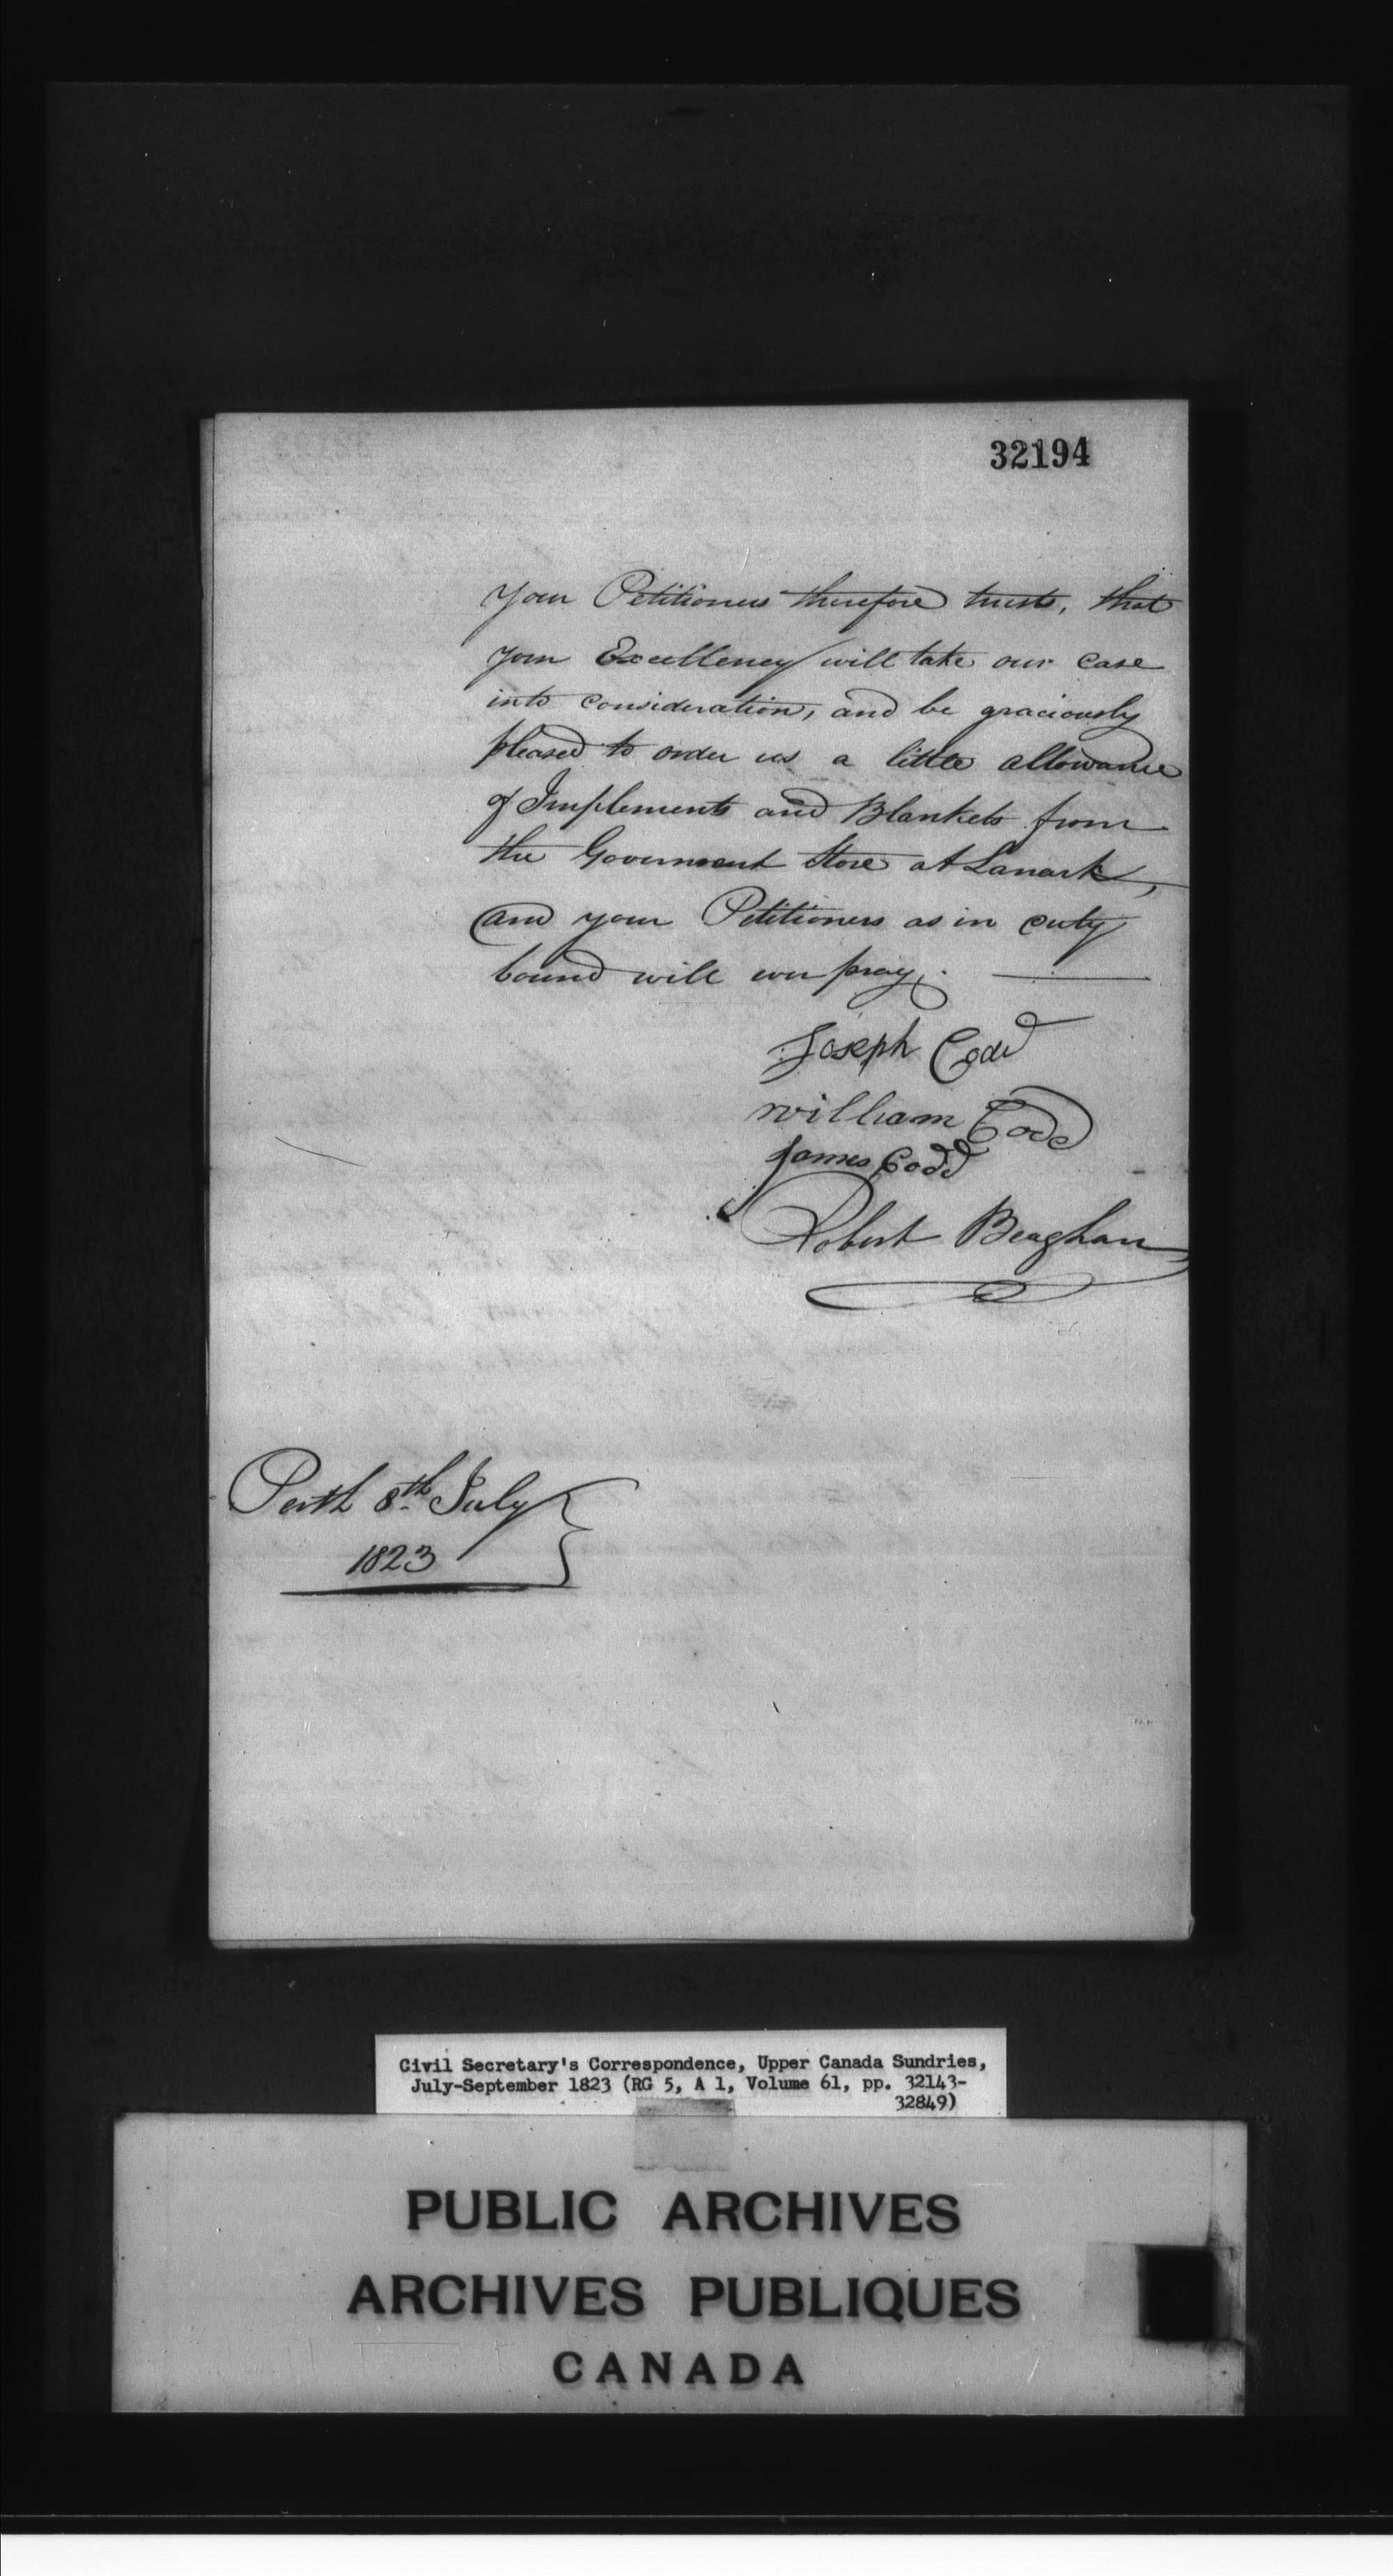 32194
Your Petitioners therefore trusts, that
your Excellency will take our case
into consideration, and be graciously
pleased to order us a little allowance
of Implements and Blankets from
the Government Store at Lanark,
and your Petitioners as in duty
bound will ever pray.
Joseph Codd
William Codd
James Codd
Robert Beaghan
Perth 8th July
1823
Civil Secretary's Correspondence, Upper Canada Sundries,
July-September 1823 (RG 5, A 1, Volume 61, pp. 32143-
32849)
PUBLIC ARCHIVES
ARCHIVES PUBLIQUES
CANADA